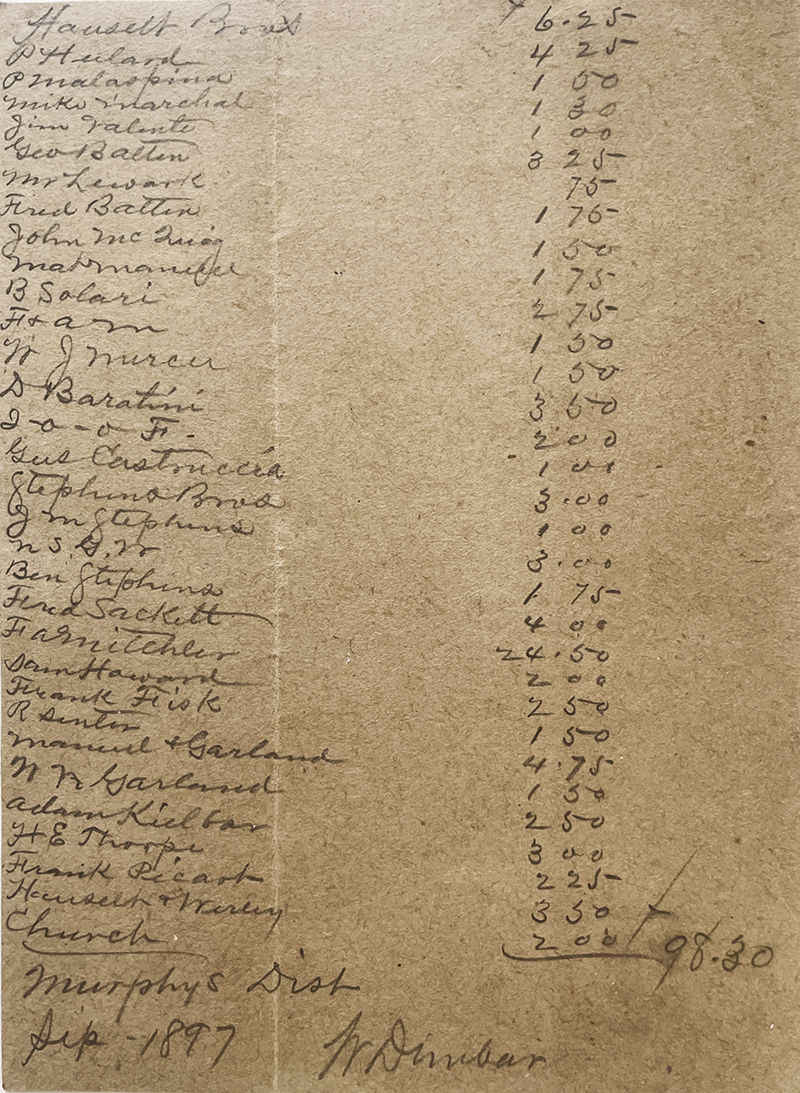 Hauselt Bros 6.25
P Heilard 4 25
P Malaspina 1 50
Mike Marchal 1 30
Jim Valente 1 00
Geo Batten 3 25
Mr Lewark 75
Fred Batten 1 75
John McQuig 1 50
Mat Manuel 1 75
B Solari 2 75
F & A M 1 50
W J Mercer 1 50
D Baratini 3 50
I-O-O F. 2 00
Gus Castruccia 1 00
Stephens Bros 3.00
J M Stephens 1 00
N.S.G.W 3.00
Ben Stephens 1 75
Fred Sackett 4 00
F A Mitchler 24.50
Sam Howard 2 00
Frank Fisk 2 50
R Senter 1 50
Manuel & Garland 4.75
W R Garland 1 50
Adam Kielbar 2 50
H E Thorpe 3 00
Frank Picart 2 25
Hauselt & 3 50
Church 2 00 98.30
Murphys Dist
Sep - 1897 W Dunbar